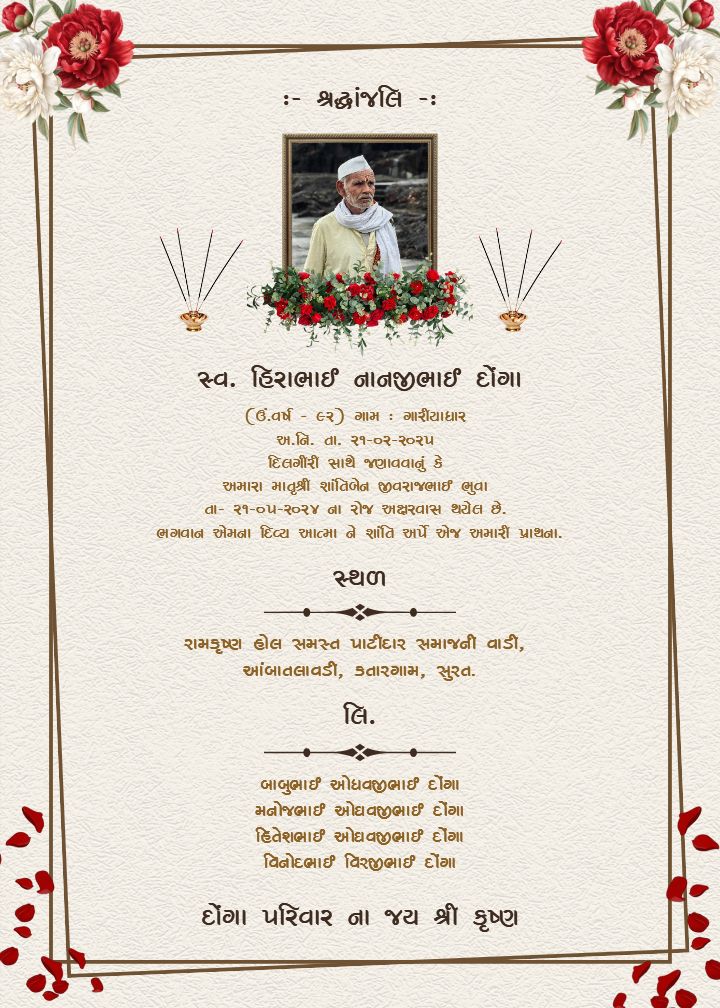 :- શ્રદ્ધાંજલિ -:
સ્વ. હિરાભાઈ નાનજીભાઈ દોંગા
(ઉં.વર્ષ - ૯૨) ગામ : ગારીયાધાર
અ.નિ. તા. ૨૧-૦૨-૨૦૨૫
દિલગીરી સાથે જણાવવાનું કે
અમારા માતૃશ્રી શાંતિબેન જીવરાજભાઈ ભુવા
તા- ૨૧-૦૫-૨૦૨૪ ના રોજ અક્ષરવાસ થયેલ છે.
ભગવાન એમના દિવ્ય આત્મા ને શાંતિ અર્પે એજ અમારી પ્રાથના.
સ્થળ
રામકૃષ્ણ હોલ સમસ્ત પાટીદાર સમાજની વાડી,
આંબાતલાવડી, કતારગામ, સુરત.
લિ.
બાબુભાઈ ઓધવજીભાઈ દોંગા
મનોજભાઈ ઓઘવજીભાઈ દોંગા
હિતેશભાઈ ઓઘવજીભાઈ દોંગા
વિનોદભાઈ વિરજીભાઈ દોંગા
દોંગા પરિવાર ના જય શ્રી કૃષ્ણ